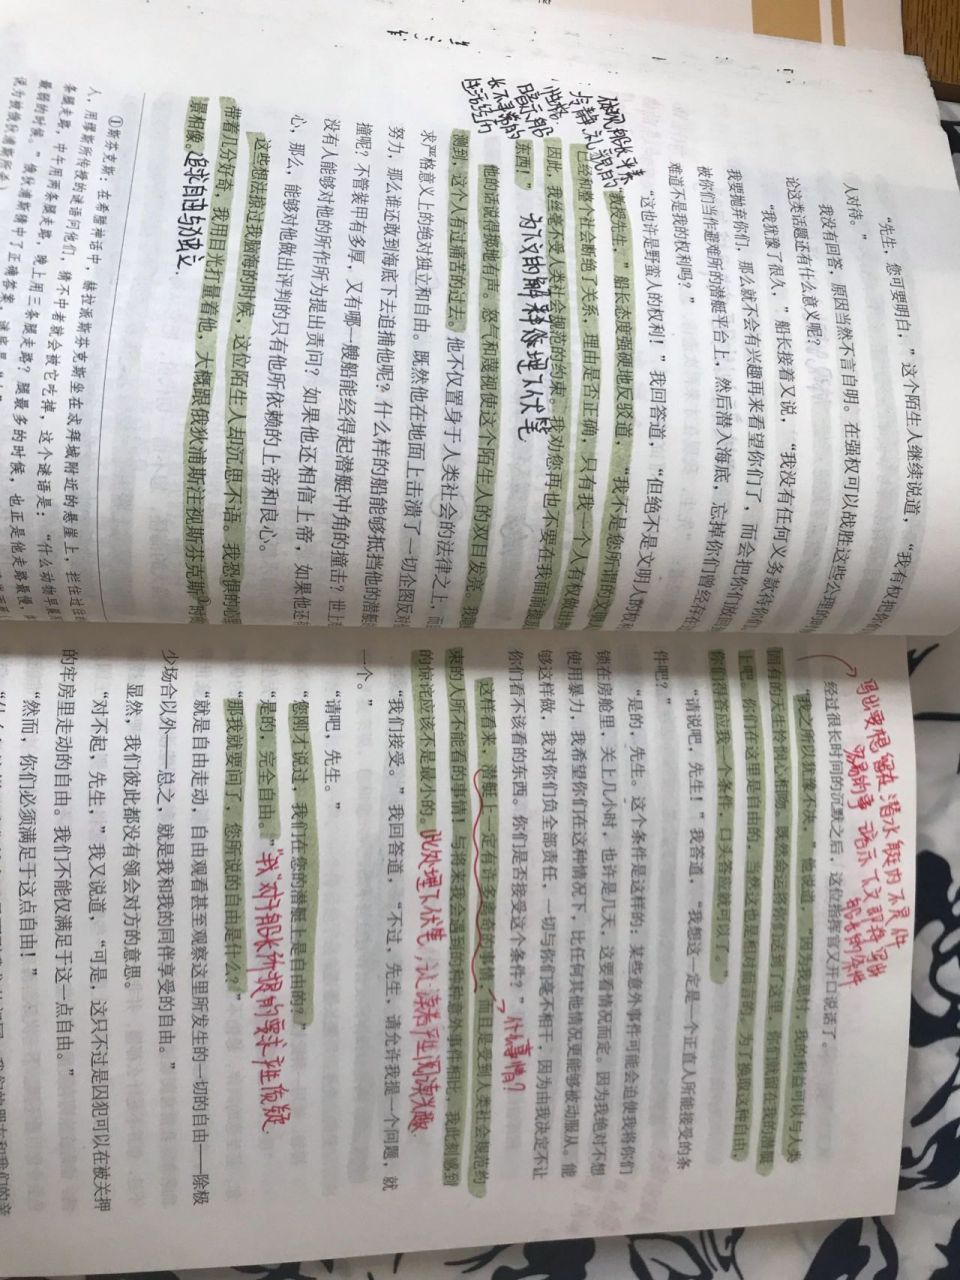 “先生，您可要明白，”这个陌生人继续说道，“我有权把你
人对待。”
我没有回答，原因当然不言自明。在强权可以战胜这些公理的时
论这类话题还有什么意义呢？
“我犹豫了很久，”船长接着又说，“我没有任何义务款待你们
我要抛弃你们，那么就不会有兴趣再来看望你们了，而会把你们放回
被你们当作避难所的潜艇平台上，然后潜入海底，忘掉你们曾经存在
难道不是我的权利吗？”
“这也许是野蛮人的权利！”我回答道，“但绝不是文明人的权利
“教授先生，”船长态度强硬地反驳道，“我不是您所谓的文明人
已经和整个社会断绝了关系，理由是否正确，只有我一个人有权做出
因此，我丝毫不受人类社会规范的约束。我劝您再也不要在我面前提
东西！”
为下文的解释处理下伏笔
他的话说得掷地有声。怒气和蔑视使这个陌生人的双目发亮。我
测到，这个人有过痛苦的过去。他不仅置身于人类社会的法律之上，而
求严格意义上的绝对独立和自由。既然他在地面上击溃了一切企图反对
努力，那么谁还敢到海底下去追捕他呢？什么样的船能够抵挡他的潜艇
撞呢？不管装甲有多厚，又有哪一艘船能经得起潜艇冲角的撞击？世上
没有人能够对他的所作所为提出责问？如果他还相信上帝，如果他还
心，那么，能够对他做出评判的只有他所依赖的上帝和良心。
这些想法掠过我脑海的时候，这位陌生人却沉思不语。我恐惧的心理
带着几分好奇，我用目光打量着他，大概跟俄狄浦斯注视斯芬克斯①时
景相像。
追求自由与独立
①斯芬克斯：在希腊神话中，赫拉派斯芬克斯坐在忒拜城附近的悬崖上，拦住过往
人，用缪斯所传授的谜语问他们，猜不中者就会被它吃掉，这个谜语是：“什么动物早晨
条腿走路，中午用两条腿走路，晚上用三条腿走路？腿最多的时候，也正是他走路最慢、
最弱的时候。”俄狄浦斯猜中了正确答案，谜底是
经过很长时间的沉默之后，这位指挥官又开口说话了。
“我之所以犹豫不决，”他说道，“因为我思忖，我的利益可以与人类
固有的天生怜悯心相吻。既然命运将你们送到了这里，你们就留在我的潜艇
上吧。你们在这里是自由的，当然这也是相对而言的。为了换取这种自由，
你们得答应我一个条件，口头答应就可以了。”
“请说吧，先生！”我答道，“我想这一定是一个正直人所能接受的条
件吧？”
“是的，先生。这个条件是这样的：某些意外事件可能会迫使我将你们
锁在房舱里，关上几小时，也许是几天，这要看情况而定。因为我绝对不想
使用暴力，我希望你们在这种情况下，比任何其他情况更能够被动服从。能
够这样做，我对你们负全部责任，一切与你们毫不相干，因为由我决定不让
你们看不该看的东西。你们是否接受这个条件？”
什么事情？
这样看来，潜艇上一定有许多奇奇怪怪的事情，而且是受到人类社会规范约
束的人所不能看的事情！与将来我会遇到的种种意外事件相比，我此刻感到
的惊诧应该不是最小的。
此处埋下伏笔，让读者产生阅读兴趣
“我们接受。”我回答道，“不过，先生，请允许我提一个问题，就
一个。”
“请吧，先生。”
“您刚才说过，我们在您的潜艇上是自由的？”
“是的，完全自由。”
“我”对于船长所提的要求产生质疑
“那我就要问了，您所说的自由是什么？”
“就是自由走动，自由观看甚至观察这里所发生的一切的自由——除极
少场合以外——总之，就是我和我的同伴享受的自由。”
显然，我们彼此都没有领会对方的意思。
“对不起，先生，”我又说道，“可是，这只不过是囚犯可以在被关押
的牢房里走动的自由。我们不能仅满足于这一点自由。”
“然而，你们必须满足于这点自由！”